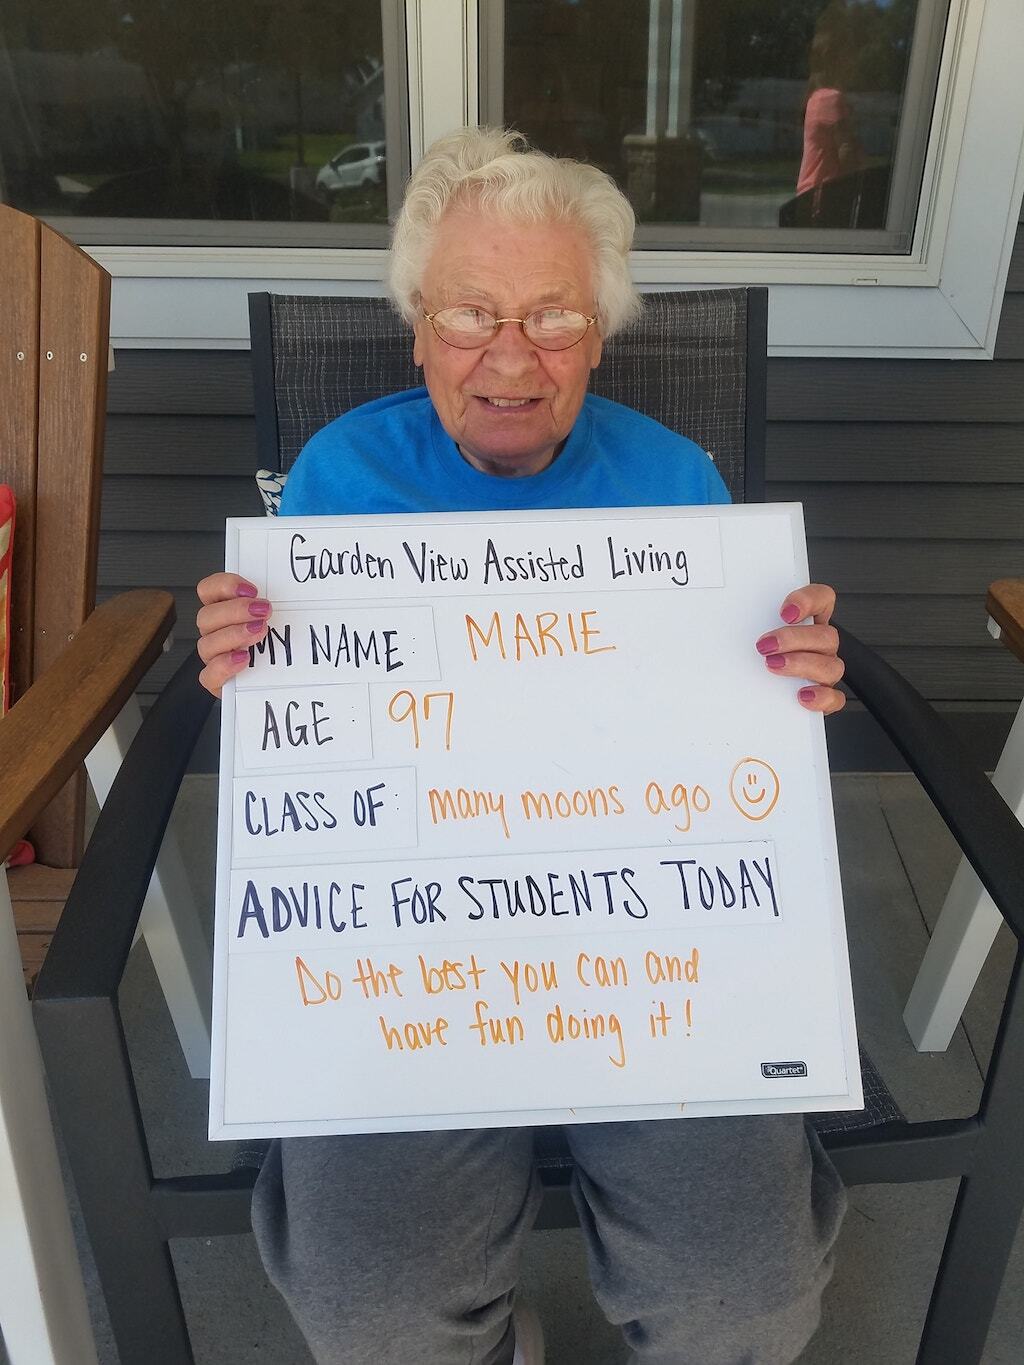 Garden View Assisted Living
MY NAME: MARIE
AGE: 97
CLASS OF: many moons ago
ADVICE FOR STUDENTS TODAY
Do the best you can and
have fun doing it!
Quartet